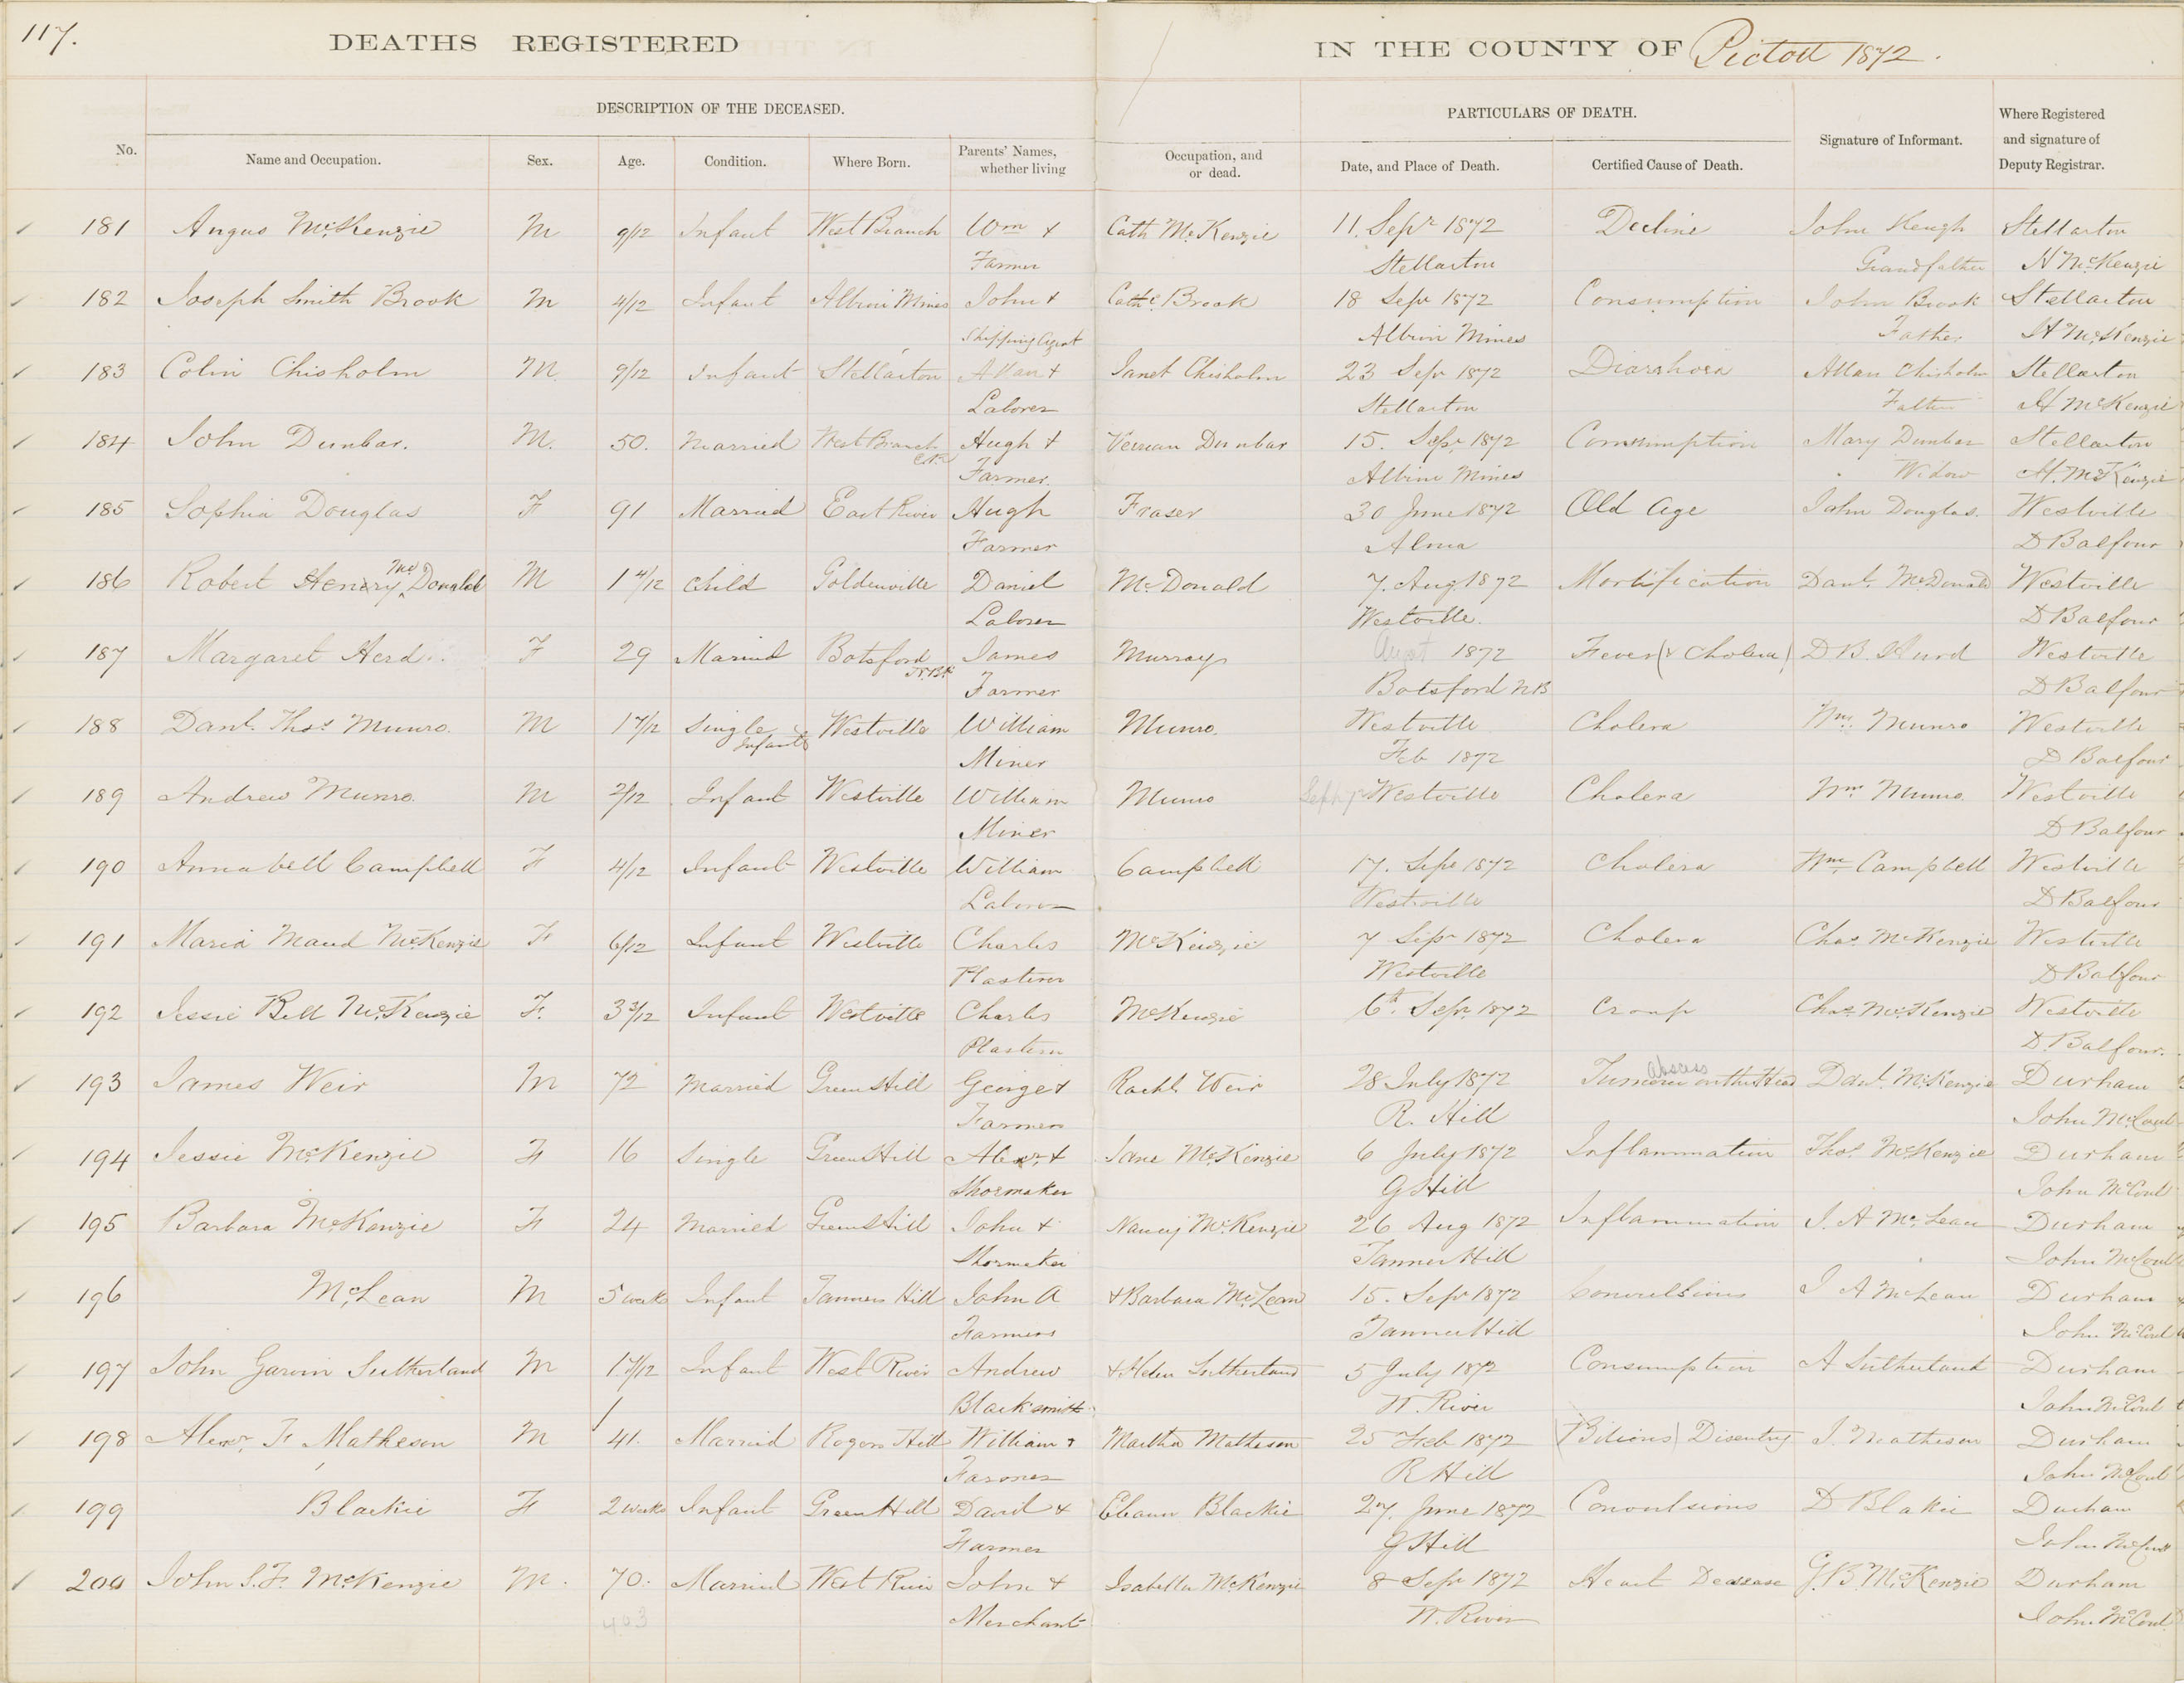 117.
DEATHS REGISTERED IN THE COUNTY OF Pictou 1872.
DESCRIPTION OF THE DECEASED. PARTICULARS OF DEATH.
No. Name and Occupation. Sex. Age. Condition. Where Born. Parents' Names, whether living Occupation, and or dead. Date, and Place of Death. Certified Cause of Death. Signature of Informant. Where Registered and signature of Deputy Registrar.
181 Angus McKenzie M 9/12 Infant West Branch Wm + Cath McKenzie 11. Sepr 1872 Decline John Keugh Stellarton
Farmer Stellarton Grandfather H McKenzie
182 Joseph Smith Brook M 4/12 Infant Albion Mines John + Cathe Brook 18 Sepr 1872 Consumption John Brook Stellarton
Shipping Agent Albion Mines Father H McKenzie
183 Colin Chisholm M. 9/12 Infant Stellarton Allan + Janet Chisholm 23 Sepr 1872 Diarrhoea Allan Chisholm Stellarton
Laborer Stellarton Father H McKenzie
184 John Dunbar. M. 50. Married West Branch Hugh + Dunbar 15. Sepr 1872 Consumption Mary Dunbar Stellarton
Farmer. Albion Mines Widow H. McKenzie
185 Sophia Douglas F 91 Married East River Hugh Fraser 30 June 1872 Old Age John Douglas. Westville
Farmer Alma D Balfour
186 Robert Henry Mc Donald M 1 4/12 Child Goldenville Daniel McDonald 7. Aug 1872 Mortification Danl. McDonald Westville
Laborer Westville. D Balfour
187 Margaret Herd F 29 Married Botsford James Murray August 1872 Fever (& Cholera) D B. Hurd Westville
N.B. Farmer Botsford N B D Balfour
188 Danl. Thos Munro. M 17/12 Single Westville William Munro. Westville Cholera Wm. Munro Westville
Infant Miner Feb 1872 D Balfour
189 Andrew Munro. M 2/12 Infant Westville William Munro Westville Cholera Wm Munro. Westville
Miner D Balfour
190 Annabell Campbell F 4/12 Infant Westville William Campbell 17. Sepr 1872 Cholera Wm Campbell Westville
Laborer Westville D Balfour
191 Maria Maud McKenzie F 6/12 Infant Westville Charles McKenzie 7 Sepr 1872 Cholera Chas McKenzie Westville
Plasterer Westville D Balfour
192 Jessie Bell McKenzie F. 3 3/12 Infant Westville Charles McKenzie 6th Sepr. 1872 Croup Chas McKenzie Westville
Plasterer D. Balfour.
193 James Weir M 72 Married Green Hill George + Rachl. Weir 28 July 1872 Tumour abscess on the Head Danl. McKenzie Durham
Farmer R. Hill John McCoul
194 Jessie McKenzie F 16 Single Green Hill Alexr. + Jane McKenzie 6 July 1872 Inflammation Thos McKenzie Durham
Shormaker G Hill John McCoul
195 Barbara McKenzie F 24 Married Green Hill John + Nancy McKenzie 26 Aug 1872 Inflammation J. A McLean Durham
Shormaker Tanner Hill John McCoul
196 McLean M 5 weeks Infant Tanners Hill John A + Barbara McLean 15. Sepr 1872 Convulsions J A McLean Durham
Farmers Tanner Hill John McCoul
197 John Garvin Sutherland M 17/12 Infant West River Andrew + Helen Sutherland 5 July 1872 Consumption A Sutherland Durham
Blacksmith W. River John McCoul
198 Alexr. F Matheson M 41. Married Rogers Hill William + Martha Matheson 25 Feb 1872 (Bilious) Disentry J. Matheson Durham
Farmer R Hill John McCoul
199 Blackie F 2 weeks Infant Green Hill David + Eleanor Blackie 27. June 1872 Convulsions D Blakie Durham
Farmer G Hill John McCoul
200 John S. F. McKenzie M. 70. Married West River John + Isabella McKenzie 8 Sepr 1872 Heart Desease G. B. McKenzie Durham
403 Merchant W. River John McCoul